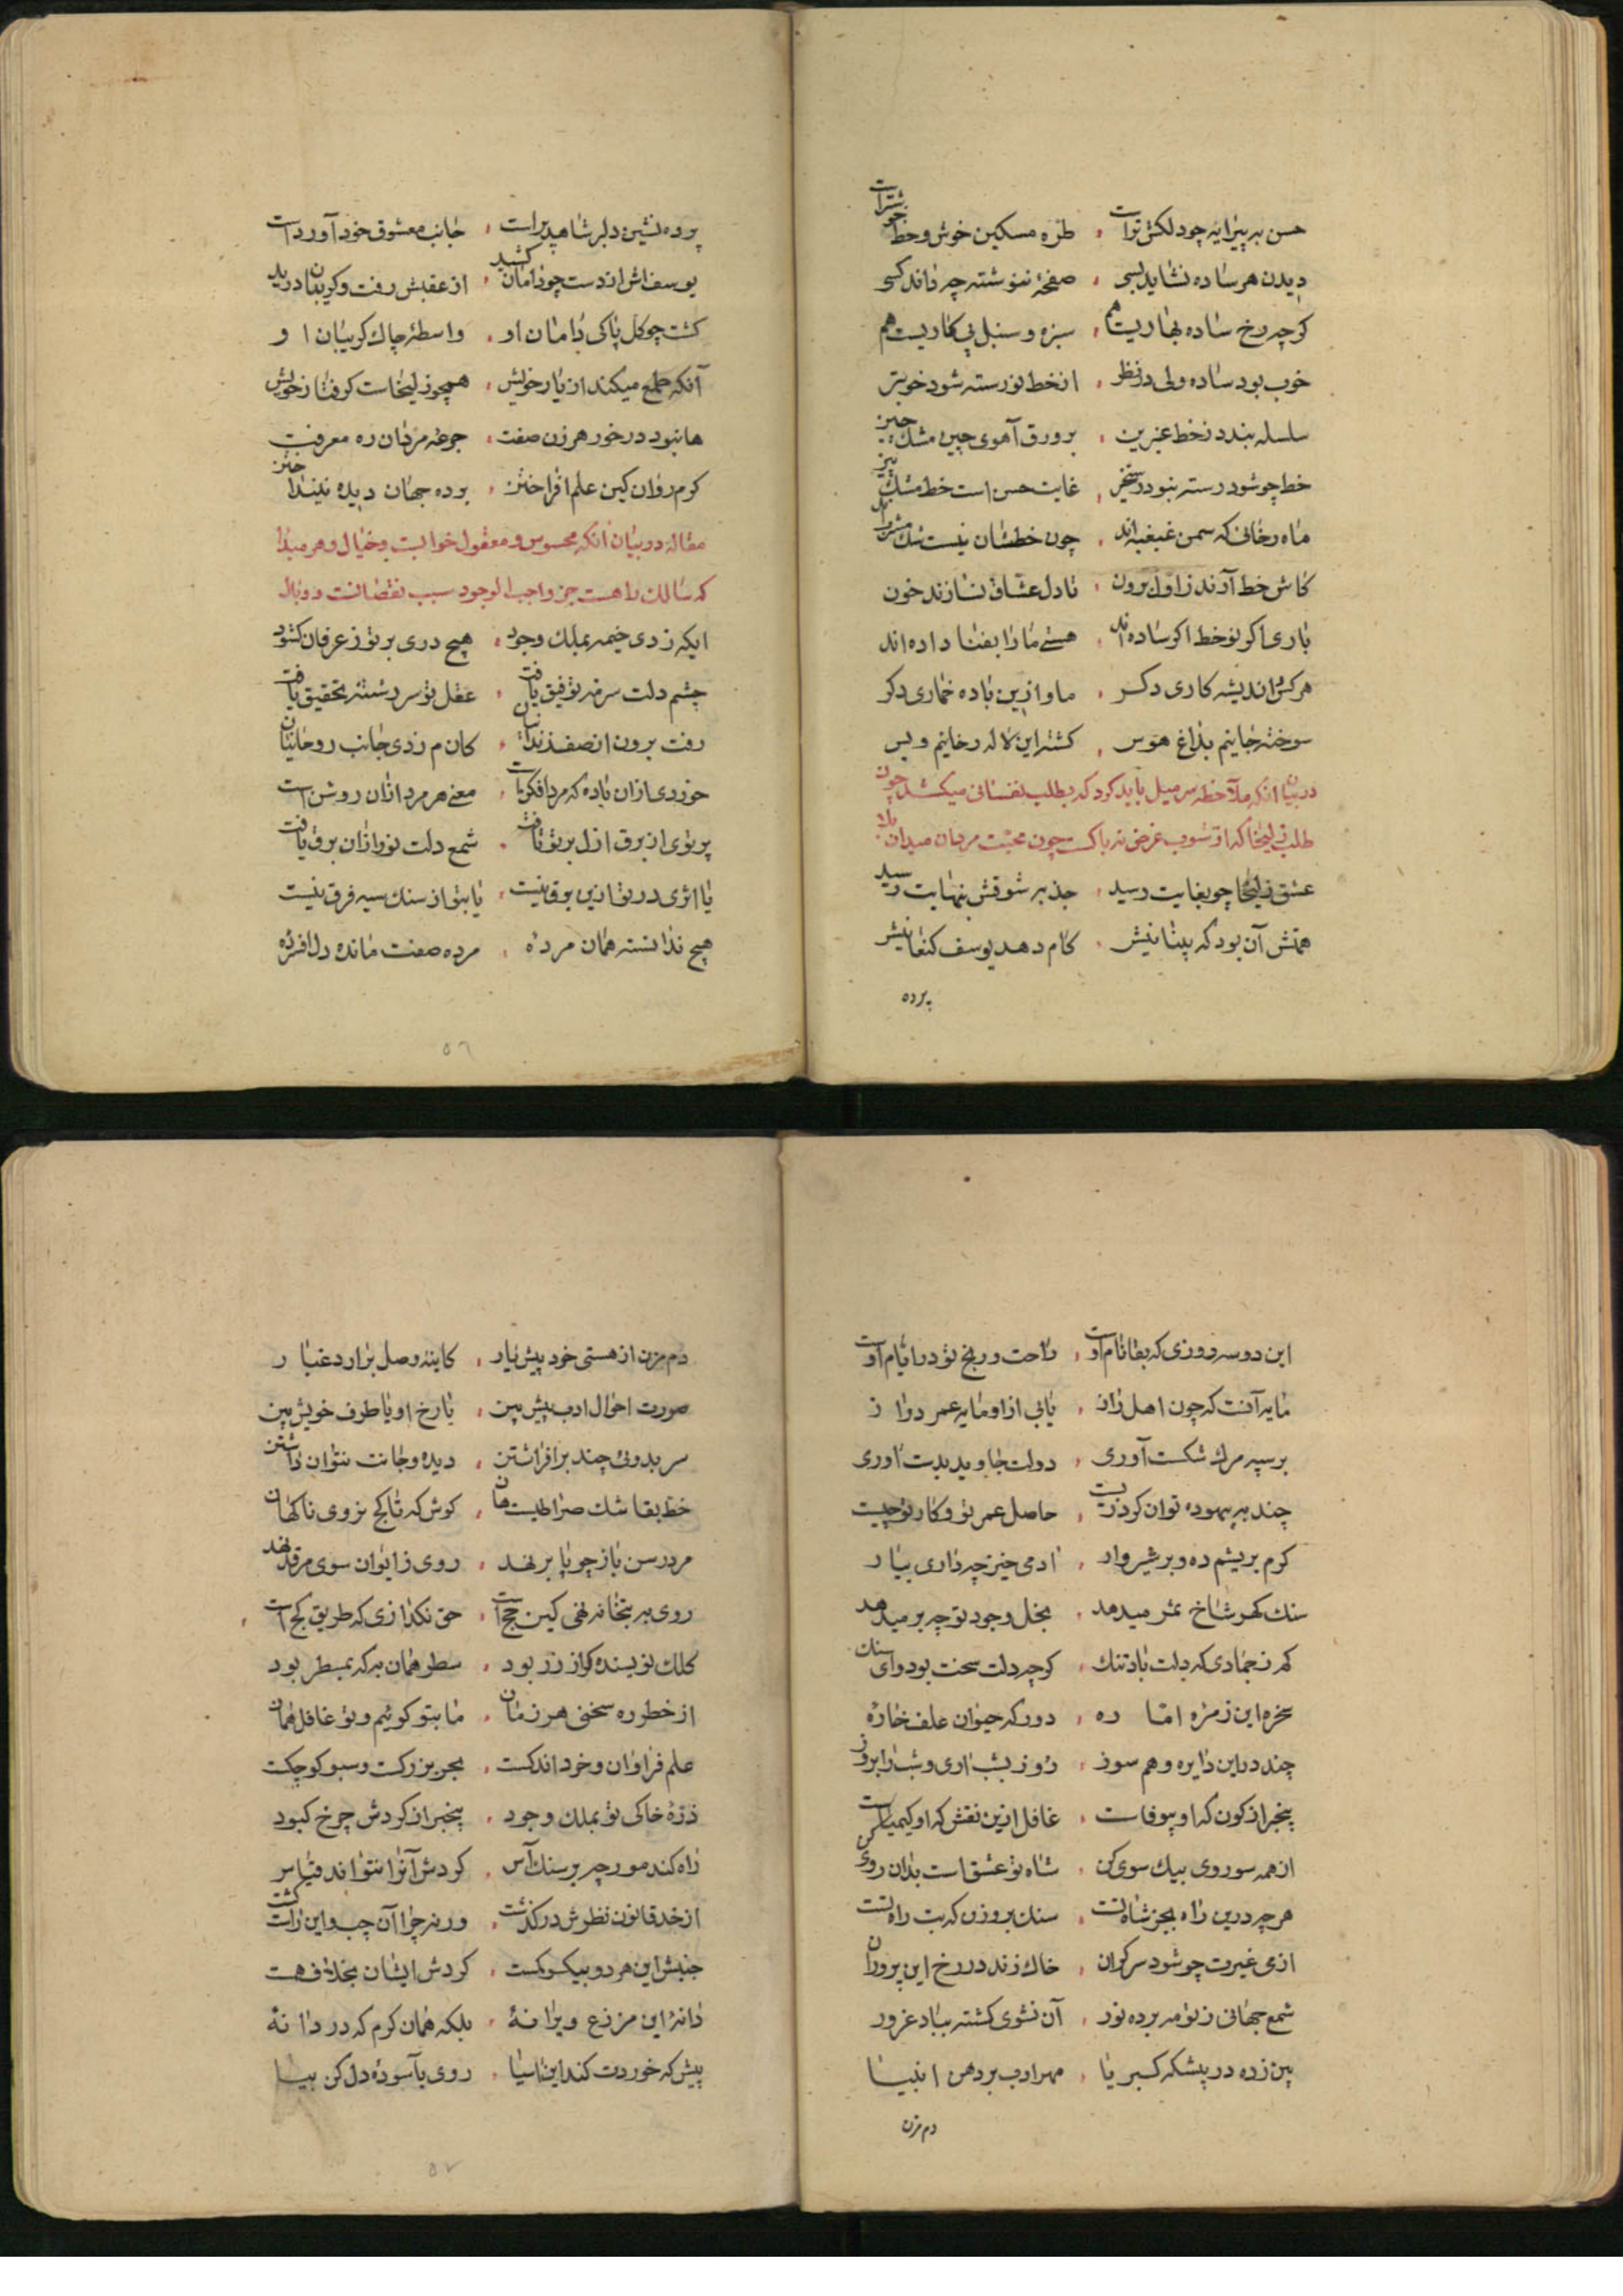 حسن به پیرایه چو دلکش تر است ، طرّه مسکین خوش و خط خوشتر است
دیدن هر ساده نشاید بسی ، صفحهٔ ننوشته چه داند کسی
کرچه رخ ساده بهاریست هم ، سبزه و سنبل پی کاریست هم
خوب بود ساده ولی در نظر ، از خط نورسته شود خوبتر
سلسله بندد ز خط عنبرین ، بر ورق آهوی چین مشک چین
خط چو شود رسته بود رستخیز ، غایت حسن است خط مشک بیز
ماه رخانی که سمن غبغب اند ، چون خطشان نیست شک
کاش خط آرند ز اول برون ، تا دل عشاق نسازند خون
باری اکر نو خط اکر ساده اند ، هستی ما را بفنا داده اند
هر کس و اندیشه کاری دکر ، ما و ازین باده خماری دکر
سوخته جانیم بداغ هوس ، کشته این لاله رخانیم و بس
در بیان انکه ملاحظه سر میل باید کرد که بطلب نفسانی میکشد چون
طلب زلیخا که از شوب غرض نه پاکست چون محبت مردان میدان بلا
عشق زلیخا چو بغایت رسید ، جذبه شوقش بنهایت رسید
همتش آن بود که پنهانیش ، کام دهد یوسف کنعانیش
پرده
پرده نشین دلبر شاهد پرست ، جانب معشوق خود آورد دست
یوسفش از دست چو دامان کشید ، از عقبش رفت و کریبان درید
کشت چو کل پاکی دامان او ، واسطهٔ چاک کریبان او
آنکه طمع میکند از یار خویش ، همچو زلیخاست کرفتار خویش
ها نبود در خور هر زن صفت ، جرعه مردان ره معرفت
کرم روان کین علم افراختن ، برده جهان دیده
مقاله در بیان آنکه محسوس و معقول خوابست و خیال و هر مبدا
که سالک را هست جز واجب الوجود سبب نقصانست و وبال
ایکه زدی خیمه بملک وجود ، هیچ دری بر تو ز عرفان کشود
چشم دلت سرمه توفیق یافت ، عقل تو سررشته تحقیق یافت
رفت برون از صف زندانیان ، کان م زدی جانب روحانیان
خوردی ازان باده که مرد افکن است ، معنی هر مرد ازان روشن است
پرتوی از برق ازل بر تو تافت ، شمع دلت نور ازان برق یافت
یا اثری در تو ازین برق نیست ، یا بتو از سنک سیه فرق نیست
هیچ ندانسته همان مردهٔ ، مرده صفت مانده دل افسردهٔ
۵۶
این دو سه روزی که بقا نام اوست ، راحت و رنج تو در ایام اوست
مایه آنست که چون اهل راز ، یابی از او مایه عمر دراز
بر سپه مرک شکست آوری ، دولت جاوید بدست آوری
چند به بیهوده توان کرد زیست ، حاصل عمر تو و کار تو چیست
کرم بریشم ده و بز شیروار ، ادمی خیز چه داری بیار
سنک کهر شاخ ثمر میدهد ، نخل وجود تو چه بر میدهد
کم ز جمادی که دلت باد تنک ، کرچه دلت سخت بود وای سنک
سخره این زمره اماره ، دور که حیوان علف خاره
چند درین دایره وهم سوز ، روز بشب آری و شب را بروز
بیخبر از کون که او بیوفاست ، غافل ازین نقش که او کیمیاست
از همه سو روی بیک سوی کن ، شاه تو عشق است بدان روی کن
هر چه درین راه بجز شاه تست ، سنک بروزن که بت راه تست
ازمی غیرت چو شود سرکران ، خاک زند در رخ این پروران
شمع جهانی ز تو مه برده نور ، آن نشوی کشته بباد غرور
بین زده در پیشکه کبریا ، مهر ادب بر دهن انبیا
دم مزن
دم مزن از هستی خود پیش یار ، کاینه وصل برارد غبار
صورت احوال ادب پیش بین ، یا رخ او یا طرف خویش بین
سر بدوئی چند برافراشتن ، دیده و جانت نتوان داشتن
خط بقا شک صراطیست هان ، کوش که تا کج نروی ناکهان
مرد رسن باز چو پا بر نهد ، روی ز ایوان سوی مرقد نهد
روی به بتخانه نهی کین حج است ، حق نکذاری که طریق کج است
کلک نویسنده کر از زر بود ، سطر همان به که بمسطر بود
از خطر ره سخنی هر زمان ، ما بتو کوئیم و تو غافل همان
علم فراوان و خرد اندکست ، بحر بزرکست و سبو کوچکست
ذرهٔ خاکی تو بملک وجود ، بیخبر از کردش چرخ کبود
راه کند مورچه بر سنک آس ، کردش آنرا نتواند قیاس
از خد قانون نظرش در کذشت ، ورنه چرا آن چپ و این راست کشت
جنبش این هر دو بیکسو کست ، کردش ایشان بخلاف هست
دانهٔ این مزرع ویرانهٔ ، بلکه همان کرم که در دانهٔ
پیش که خوردت کند این آسیا ، روی بآسودهٔ دل کن بیا
۵۷